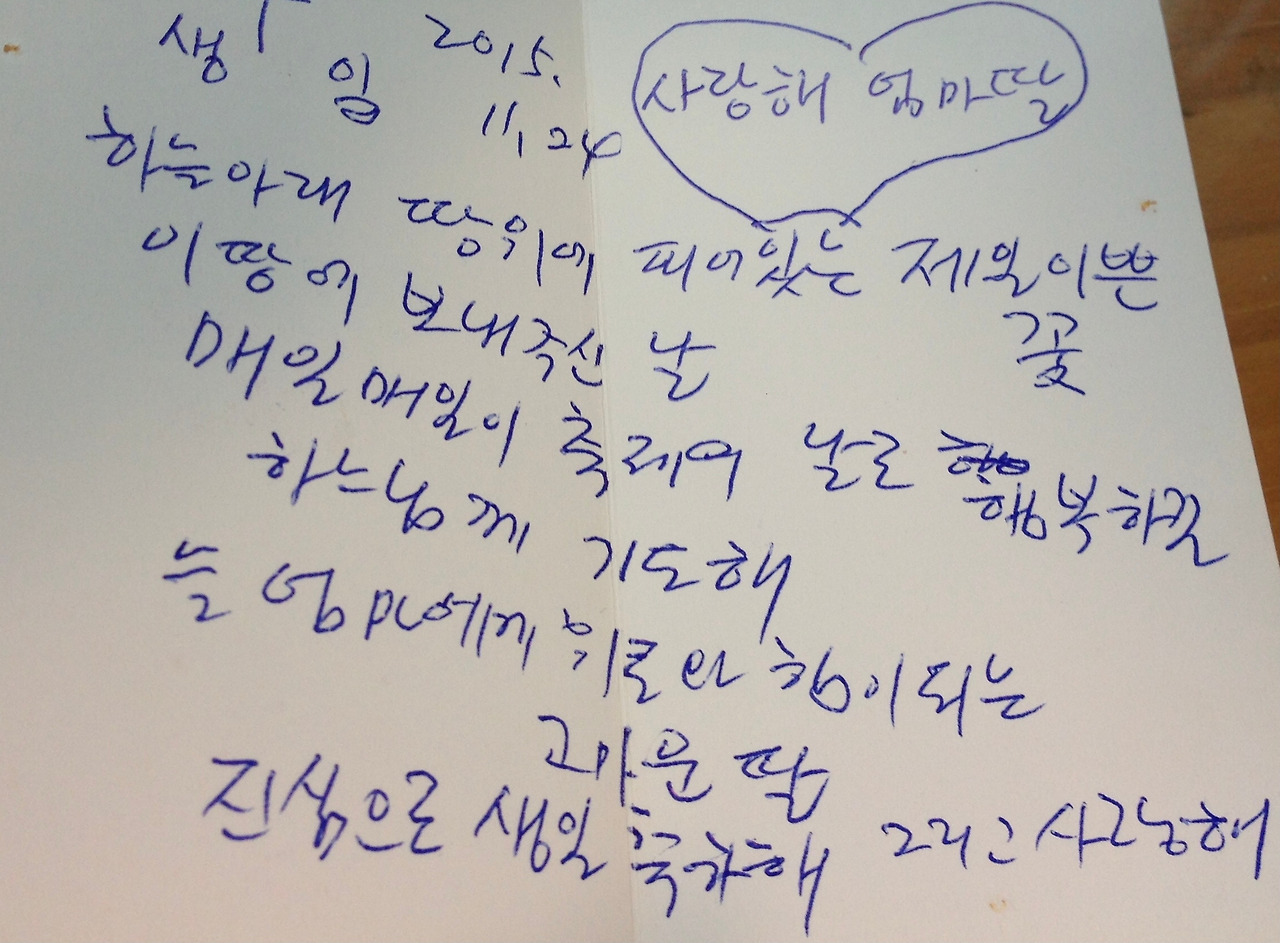 생일 2015.
11, 24
사랑해 엄마딸
하늘아래 땅위에 피어있는 제일이쁜
꽃
이땅에 보내주신 날
매일매일이 축제의 날로 행복하길
하느님께 기도해
늘 엄마에게 위로와 힘이되는
고마운 딸
진심으로 생일 축하해 그리고 사랑해